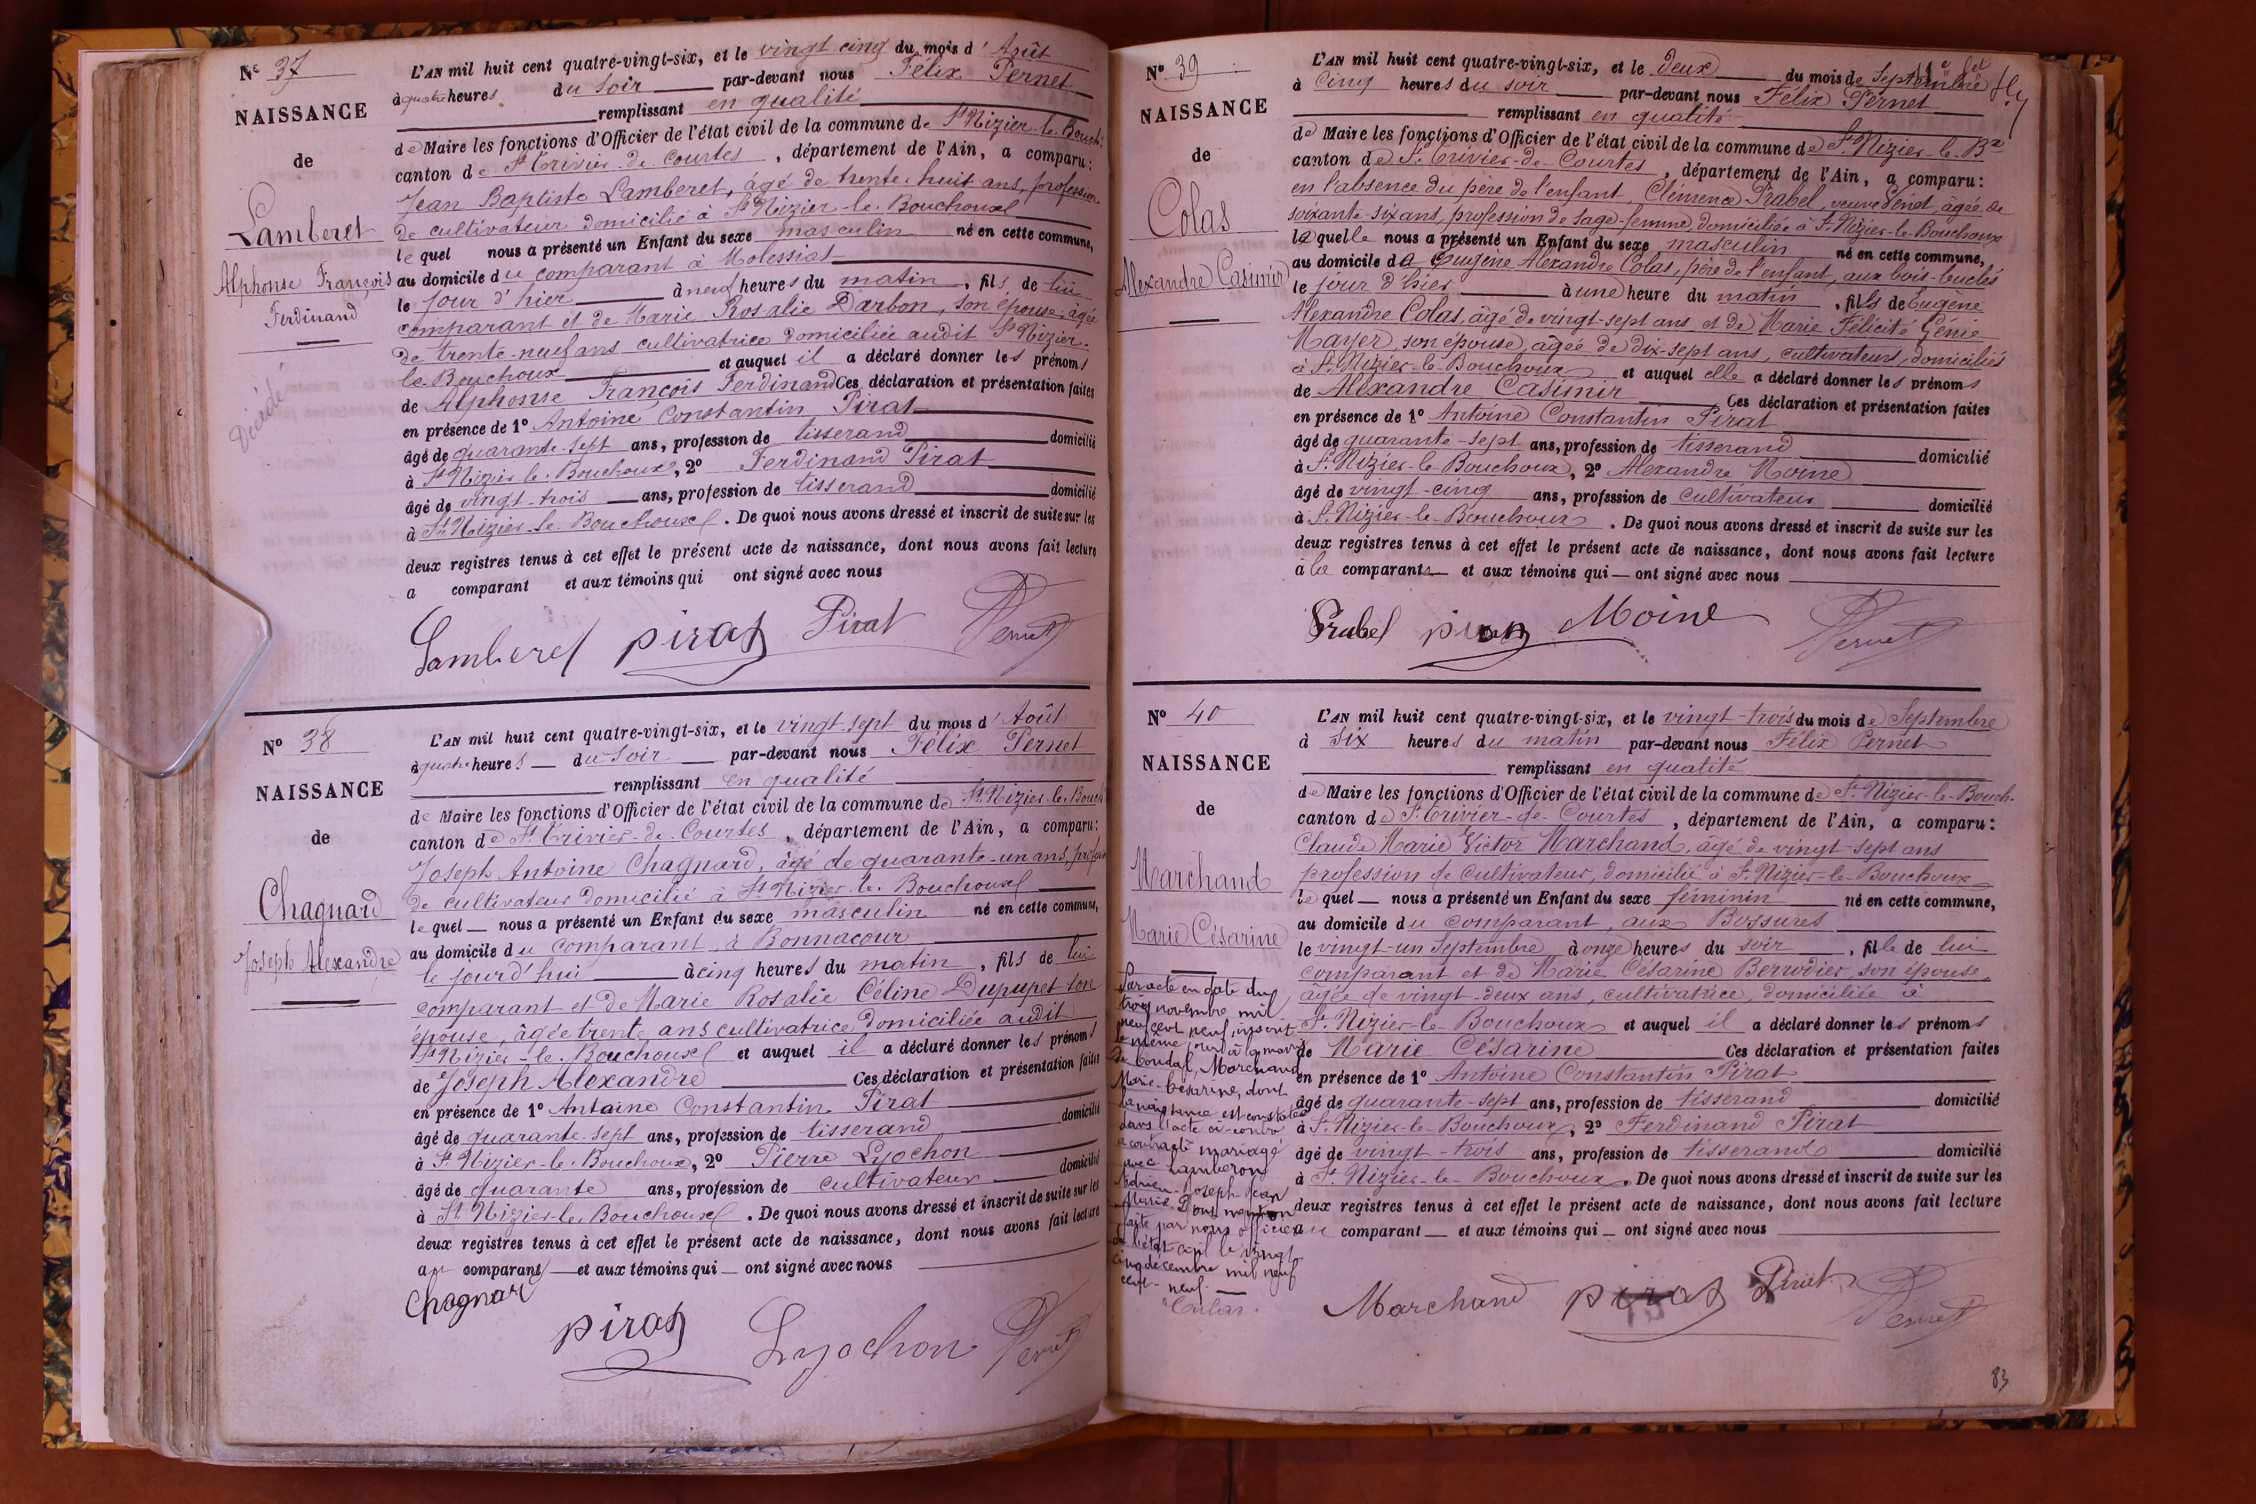 Nº 37
NAISSANCE
de
Lamberet
Alphonse François
Ferdinand
Décédé
L'AN mil huit cent quatre-vingt-six, et le vingt cinq du mois d'Août
à quatre heures du soir par-devant nous Félix Pernet
remplissant en qualité
de Maire les fonctions d'Officier de l'état civil de la commune de St Nizier-le-Bouch.
canton de St Trivier-de-Courtes, département de l'Ain, a comparu:
Jean Baptiste Lamberet, âgé de trente-huit ans, profession
de cultivateur domicilié à St Nizier-le-Bouchoux
lequel nous a présenté un Enfant du sexe masculin né en cette commune,
au domicile du comparant à Molessiat
le jour d'hier à neuf heures du matin, fils de lui
comparant et de Marie Rosalie Darbon, son épouse, âgée
de trente-neuf ans cultivatrice domiciliée audit St Nizier-
le-Bouchoux et auquel il a déclaré donner les prénoms
de Alphonse François Ferdinand Ces déclaration et présentation faites
en présence de 1º Antoine Constantin Pirat
âgé de quarante-sept ans, profession de tisserand domicilié
à St Nizier-le-Bouchoux, 2º Ferdinand Pirat
âgé de vingt-trois ans, profession de tisserand domicilié
à St Nizier-le-Bouchoux. De quoi nous avons dressé et inscrit de suite sur les
deux registres tenus à cet effet le présent acte de naissance, dont nous avons fait lecture
a comparant et aux témoins qui ont signé avec nous
Lamberet pirat Pirat Pernet
Nº 38
NAISSANCE
de
Chagnard
Joseph Alexandre
L'AN mil huit cent quatre-vingt-six, et le vingt-sept du mois d'Août
à quatre heures du soir par-devant nous Félix Pernet
remplissant en qualité
de Maire les fonctions d'Officier de l'état civil de la commune de St Nizier-le-Bouch
canton de St Trivier-de-Courtes, département de l'Ain, a comparu:
Joseph Antoine Chagnard, âgé de quarante-un ans, profession
de cultivateur domicilié à St Nizier-le-Bouchoux
lequel nous a présenté un Enfant du sexe masculin né en cette commune,
au domicile du comparant, à Bonnacour
le jourd'hui à cinq heures du matin, fils de lui
comparant et de Marie Rosalie Céline Dupupet son
épouse, âgée trente ans cultivatrice domiciliée audit
St Nizier-le-Bouchoux et auquel il a déclaré donner les prénoms
de Joseph Alexandre Ces déclaration et présentation faites
en présence de 1º Antoine Constantin Pirat
âgé de quarante-sept ans, profession de tisserand domicilié
à St Nizier-le-Bouchoux, 2º Pierre Lyochon
âgé de quarante ans, profession de cultivateur domicilié
à St Nizier-le-Bouchoux. De quoi nous avons dressé et inscrit de suite sur les
deux registres tenus à cet effet le présent acte de naissance, dont nous avons fait lecture
au comparant et aux témoins qui ont signé avec nous
Chagnard
pirat Lyochon Pernet
Nº 39
NAISSANCE
de
Colas
Alexandre Casimir
L'AN mil huit cent quatre-vingt-six, et le deux du mois de Septembre
à cinq heures du soir par-devant nous Félix Pernet
remplissant en qualité
de Maire les fonctions d'Officier de l'état civil de la commune de St Nizier-le-Bx
canton de St Trivier-de-Courtes, département de l'Ain, a comparu:
en l'absence du père de l'enfant, Clémence Prabel, veuve Vénet, âgée de
soixante-six ans, profession de sage-femme, domiciliée à St Nizier-le-Bouchoux
laquelle nous a présenté un Enfant du sexe masculin né en cette commune,
au domicile da Eugène Alexandre Colas, père de l'enfant, aux bois-buclés
le jour d'hier à une heure du matin, fils de Eugène
Alexandre Colas âgé de vingt-sept ans et de Marie Félicité Génie
Mayer, son épouse, âgée de dix-sept ans, cultivateurs, domiciliés
à St Nizier-le-Bouchoux et auquel elle a déclaré donner les prénoms
de Alexandre Casimir Ces déclaration et présentation faites
en présence de 1º Antoine Constantin Pirat
âgé de quarante-sept ans, profession de tisserand domicilié
à St Nizier-le-Bouchoux, 2º Alexandre Moine
âgé de vingt-cinq ans, profession de cultivateur domicilié
à St Nizier-le-Bouchoux. De quoi nous avons dressé et inscrit de suite sur les
deux registres tenus à cet effet le présent acte de naissance, dont nous avons fait lecture
à la comparante et aux témoins qui ont signé avec nous
Prabel pirat Moine Pernet
Nº 40
NAISSANCE
de
Marchand
Marie Césarine
Par acte en date du
trois novembre mil
neuf cent neuf, inscrit
le même jour à la mairie
de Condal, Marchand
Marie-Césarine, dont
la naissance est constatée
dans l'acte ci-contre
a contracté mariage
avec Lamberon
Adrien-Joseph-Jean
Marie. Dont mention
faite par nous officier
de l'état civil le vingt
cinq décembre mil neuf
cent-neuf.
L'AN mil huit cent quatre-vingt-six, et le vingt-trois du mois de Septembre
à six heures du matin par-devant nous Félix Pernet
remplissant en qualité
de Maire les fonctions d'Officier de l'état civil de la commune de St Nizier-le-Bouch.
canton de St Trivier-de-Courtes, département de l'Ain, a comparu:
Claude Marie Victor Marchand, âgé de vingt-sept ans
profession de cultivateur, domicilié à St Nizier-le-Bouchoux
lequel nous a présenté un Enfant du sexe féminin né en cette commune,
au domicile du comparant, aux Bossures
le vingt-un Septembre à onze heures du soir, fille de lui
comparant et de Marie Césarine Berrodier, son épouse,
âgée de vingt-deux ans, cultivatrice, domiciliée à
St Nizier-le-Bouchoux et auquel il a déclaré donner les prénoms
de Marie Césarine Ces déclaration et présentation faites
en présence de 1º Antoine Constantin Pirat
âgé de quarante-sept ans, profession de tisserand domicilié
à St Nizier-le-Bouchoux, 2º Ferdinand Pirat
âgé de vingt-trois ans, profession de tisserand domicilié
à St Nizier-le-Bouchoux. De quoi nous avons dressé et inscrit de suite sur les
deux registres tenus à cet effet le présent acte de naissance, dont nous avons fait lecture
au comparant et aux témoins qui ont signé avec nous
Marchand pirat Pirat Pernet
83